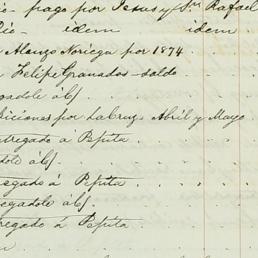 pago por Jesus y Sra Rafael
idem idem
Alonzo Noriega por 1874
Felipe Granados - saldo
gadole á b/.
diciones por labrar Abril y Mayo
tregado á Pepita
dole á b/.
regado á Pepita
egadole á b/.
regado á Pepita